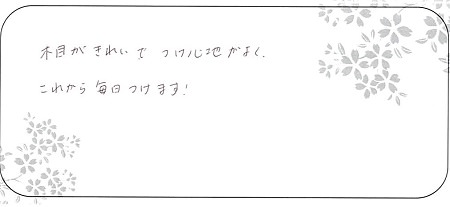 木目がきれいで つけ心地がよく、
これから毎日つけます!